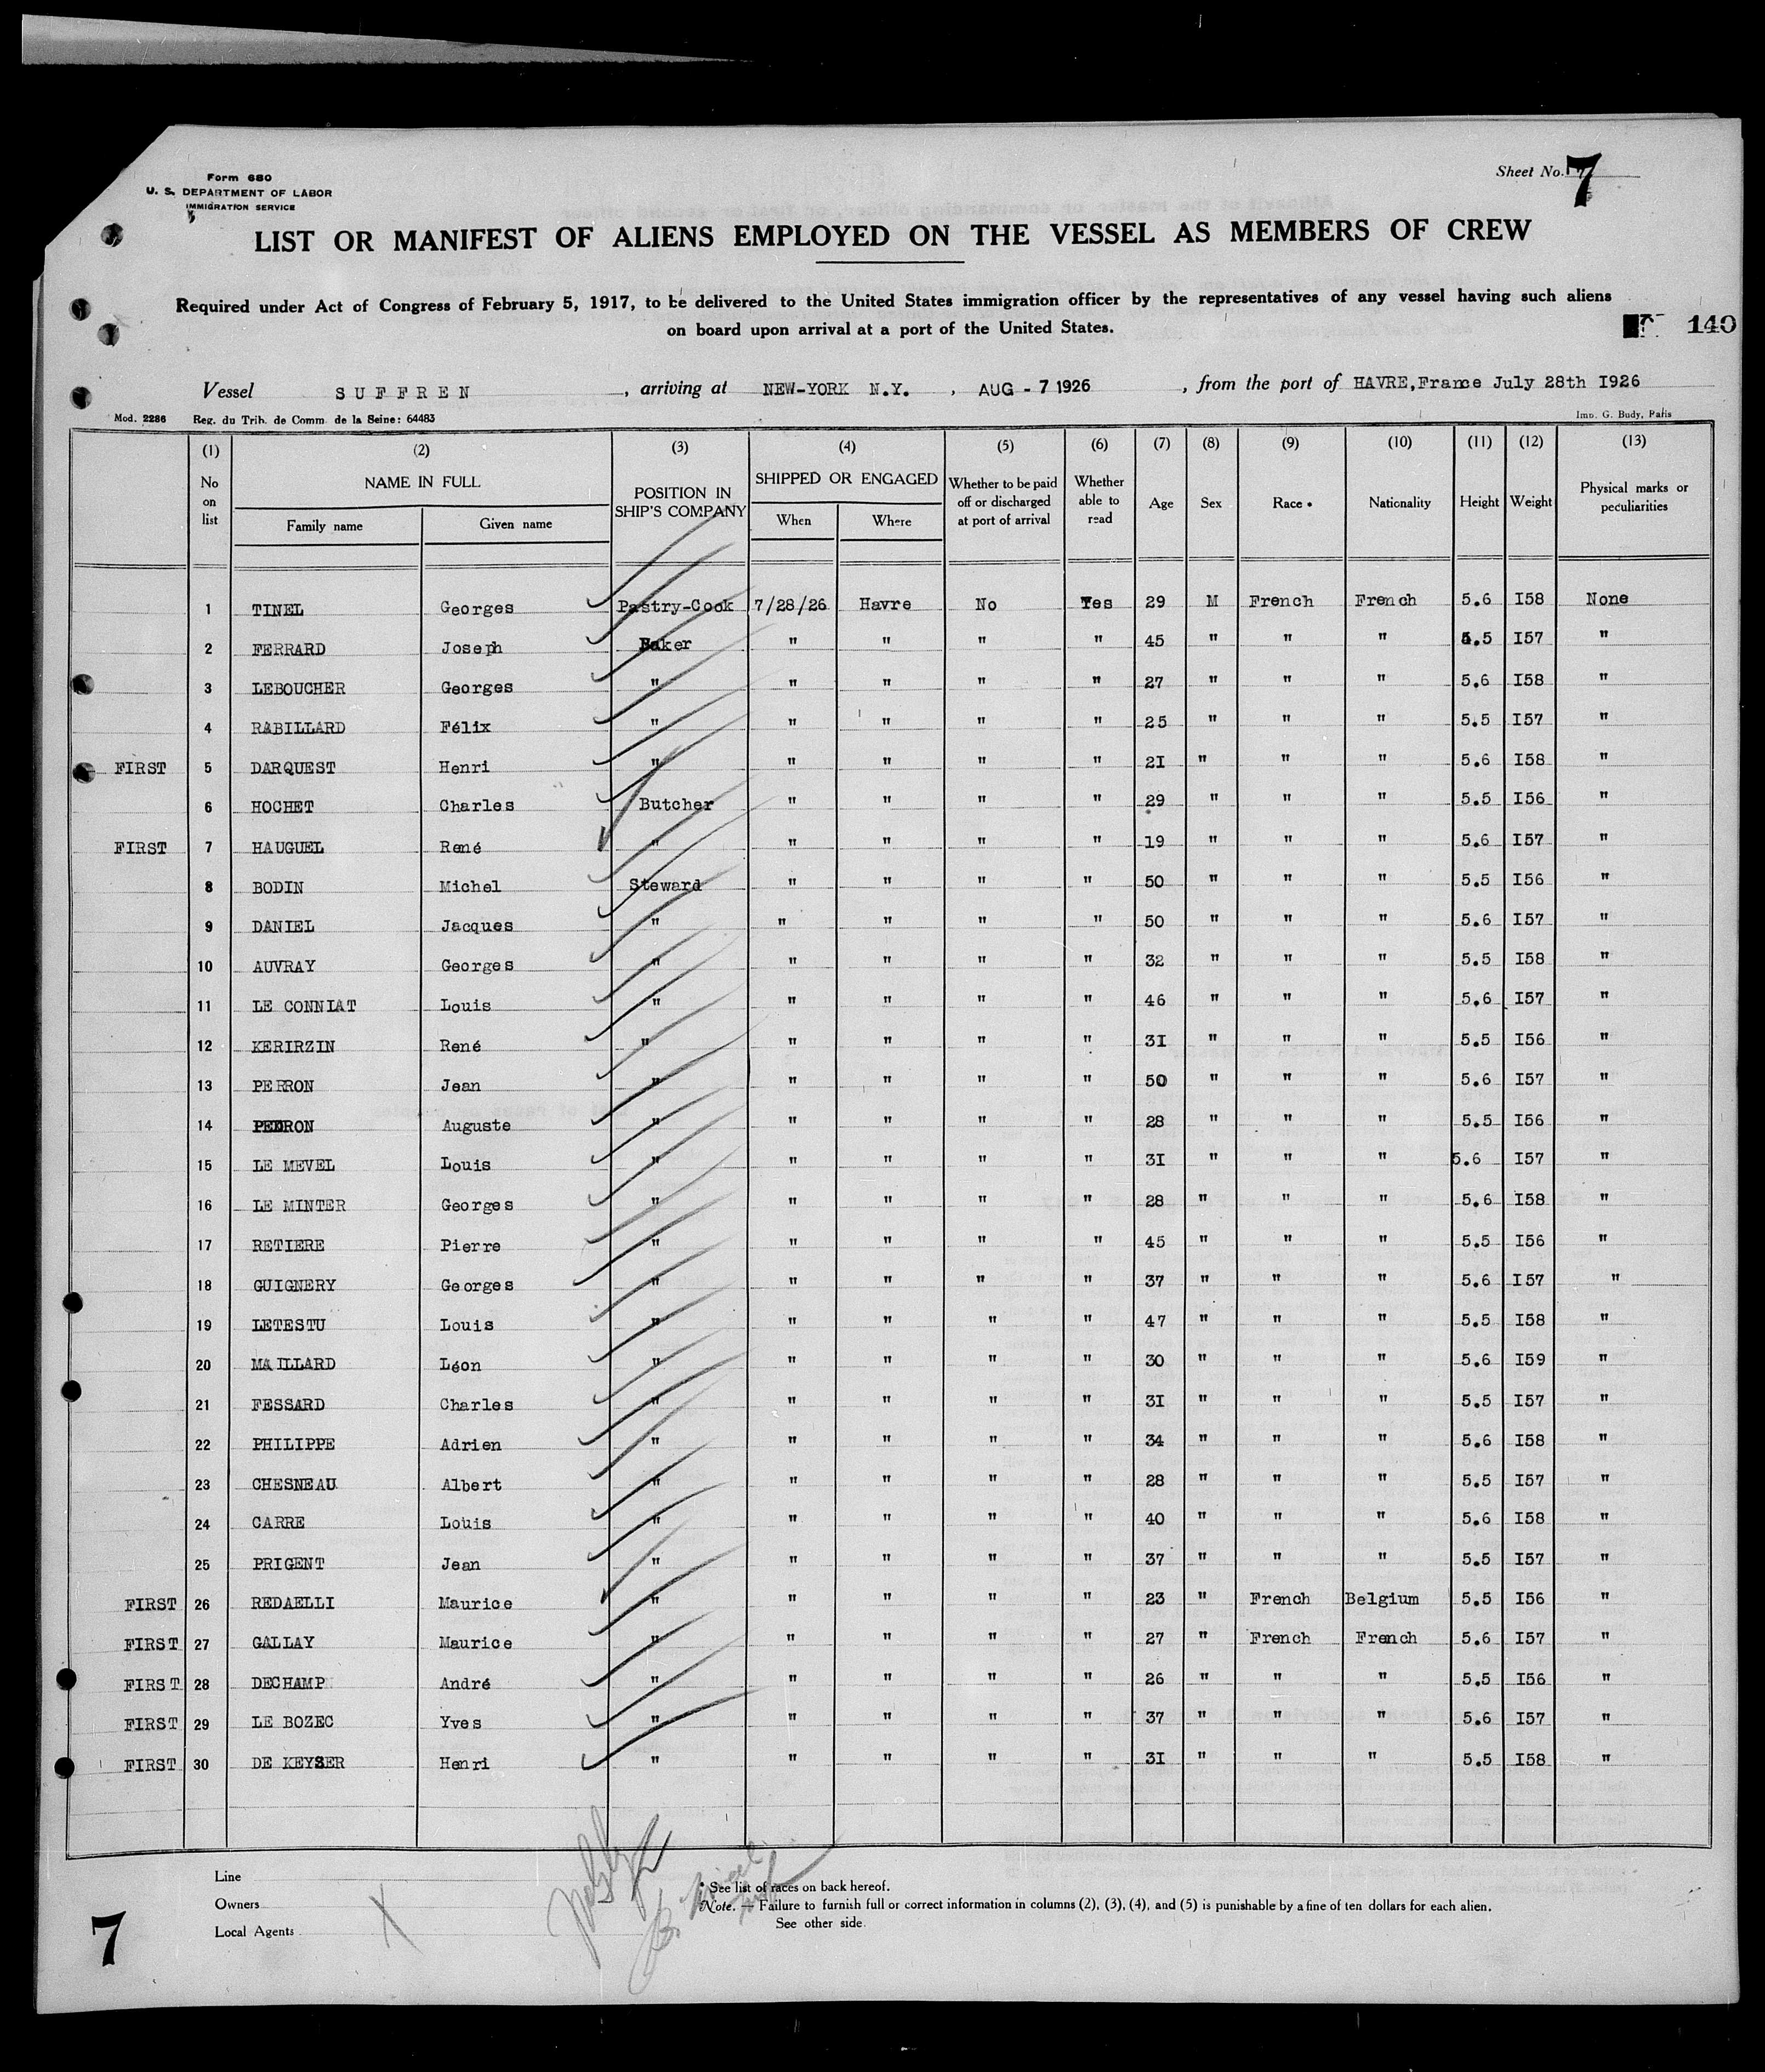 Form 680
U. S. DEPARTMENT OF LABOR
IMMIGRATION SERVICE
Sheet No. 7
LIST OR MANIFEST OF ALIENS EMPLOYED ON THE VESSEL AS MEMBERS OF CREW
Required under Act of Congress of February 5, 1917, to be delivered to the United States immigration officer by the representatives of any vessel having such aliens
on board upon arrival at a port of the United States.
140
Vessel SUFFREN , arriving at NEW-YORK N.Y. , AUG - 7 1926 , from the port of HAVRE, France July 28th I926
Mod. 2286 Reg. du Trib. de Comm. de la Seine: 64483 Imp. G. Budy, Paris
(1) (2) (3) (4) (5) (6) (7) (8) (9) (10) (11) (12) (13)
No on list NAME IN FULL Family name Given name POSITION IN SHIP'S COMPANY SHIPPED OR ENGAGED When Where Whether to be paid off or discharged at port of arrival Whether able to read Age Sex Race • Nationality Height Weight Physical marks or peculiarities
1 TINEL Georges Pastry-Cook 7/28/26 Havre No Yes 29 M French French 5.6 I58 None
2 FERRARD Joseph Baker " " " " 45 " " " 5.5 I57 "
3 LEBOUCHER Georges " " " " " 27 " " " 5.6 I58 "
4 RABILLARD Félix " " " " " 25 " " " 5.5 I57 "
FIRST 5 DARQUEST Henri " " " " " 2I " " " 5.6 I58 "
6 HOCHET Charles Butcher " " " " 29 " " " 5.5 I56 "
FIRST 7 HAUGUEL René " " " " " 19 " " " 5.6 I57 "
8 BODIN Michel Steward " " " " 50 " " " 5.5 I56 "
9 DANIEL Jacques " " " " " 50 " " " 5.6 I57 "
10 AUVRAY Georges " " " " " 32 " " " 5.5 I58 "
11 LE CONNIAT Louis " " " " " 46 " " " 5.6 I57 "
12 KERIRZIN René " " " " " 3I " " " 5.5 I56 "
13 PERRON Jean " " " " " 50 " " " 5.6 I57 "
14 PEDRON Auguste " " " " " 28 " " " 5.5 I56 "
15 LE MEVEL Louis " " " " " 3I " " " 5.6 I57 "
16 LE MINTER Georges " " " " " 28 " " " 5.6 I58 "
17 RETIERE Pierre " " " " " 45 " " " 5.5 I56 "
18 GUIGNERY Georges " " " " " 37 " " " 5.6 I57 "
19 LETESTU Louis " " " " " 47 " " " 5.5 I58 "
20 MAILLARD Léon " " " " " 30 " " " 5.6 I59 "
21 FESSARD Charles " " " " " 3I " " " 5.5 I57 "
22 PHILIPPE Adrien " " " " " 34 " " " 5.6 I58 "
23 CHESNEAU Albert " " " " " 28 " " " 5.5 I57 "
24 CARRE Louis " " " " " 40 " " " 5.6 I58 "
25 PRIGENT Jean " " " " " 37 " " " 5.5 I57 "
FIRST 26 REDAELLI Maurice " " " " " 23 " French Belgium 5.5 I56 "
FIRST 27 GALLAY Maurice " " " " " 27 " French French 5.6 I57 "
FIRST 28 DECHAMP André " " " " " 26 " " " 5.5 I56 "
FIRST 29 LE BOZEC Yves " " " " " 37 " " " 5.6 I57 "
FIRST 30 DE KEYSER Henri " " " " " 3I " " " 5.5 I58 "
Line
Owners
Local Agents
* See list of races on back hereof.
Note. — Failure to furnish full or correct information in columns (2), (3), (4), and (5) is punishable by a fine of ten dollars for each alien.
See other side.
7